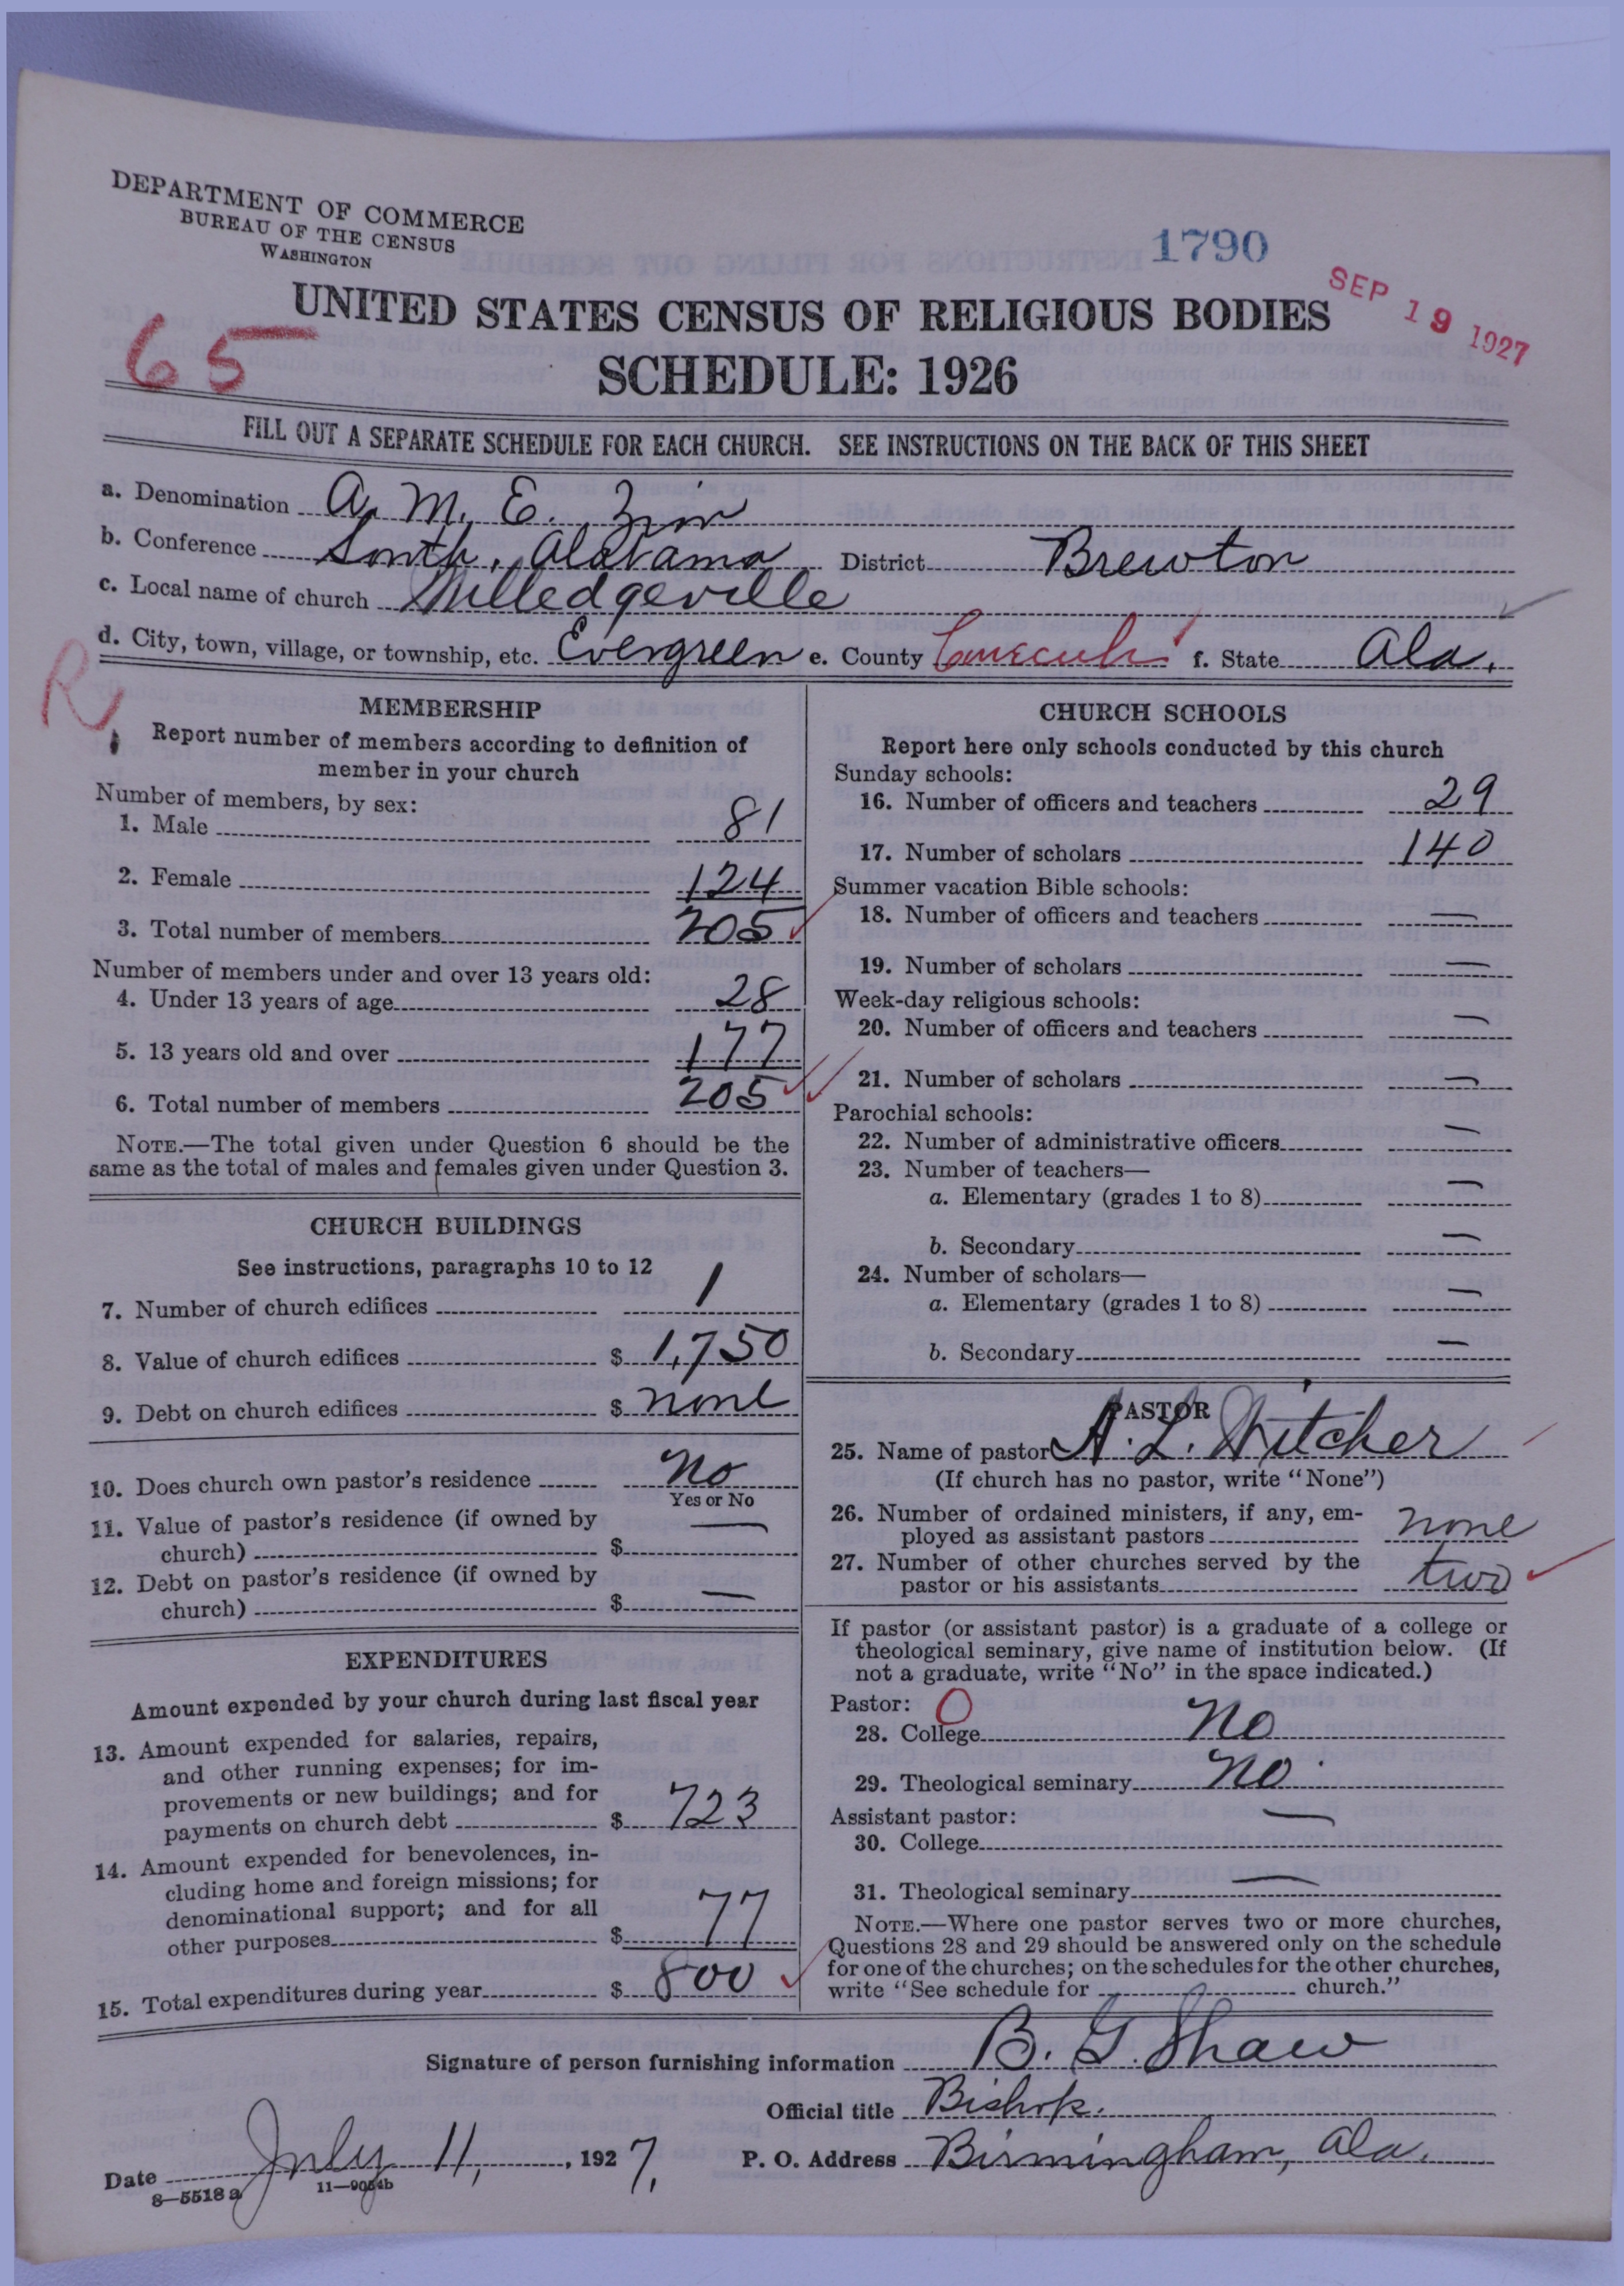 DEPARTMENT OF COMMERCE
BUREAU OF THE CENSUS
WASHINGTON
1790
SEP 19 1927
65
UNITED STATES CENSUS OF RELIGIOUS BODIES
SCHEDULE: 1926
FILL OUT A SEPARATE SCHEDULE FOR EACH CHURCH. SEE INSTRUCTIONS ON THE BACK OF THIS SHEET
a. Denomination A. M. E. Zion
b. Conference South, Alabama District Brewton
c. Local name of church Milledgeville
d. City, town, village, or township, etc. Evergreen e. County Conecuh f. State Ala.
R
MEMBERSHIP
Report number of members according to definition of
member in your church
Number of members, by sex:
1. Male 81
2. Female 124
3. Total number of members 205
Number of members under and over 13 years old:
4. Under 13 years of age 28
5. 13 years old and over 177
6. Total number of members 205
NOTE.—The total given under Question 6 should be the
same as the total of males and females given under Question 3.
CHURCH BUILDINGS
See instructions, paragraphs 10 to 12
7. Number of church edifices 1
8. Value of church edifices $ 1,750
9. Debt on church edifices $ none
10. Does church own pastor's residence No
Yes or No
11. Value of pastor's residence (if owned by
church) $ —
12. Debt on pastor's residence (if owned by
church) $ —
EXPENDITURES
Amount expended by your church during last fiscal year
13. Amount expended for salaries, repairs,
and other running expenses; for im-
provements or new buildings; and for
payments on church debt $ 723
14. Amount expended for benevolences, in-
cluding home and foreign missions; for
denominational support; and for all
other purposes $ 77
15. Total expenditures during year $ 800
CHURCH SCHOOLS
Report here only schools conducted by this church
Sunday schools:
16. Number of officers and teachers 29
17. Number of scholars 140
Summer vacation Bible schools:
18. Number of officers and teachers —
19. Number of scholars —
Week-day religious schools:
20. Number of officers and teachers —
21. Number of scholars —
Parochial schools:
22. Number of administrative officers —
23. Number of teachers—
a. Elementary (grades 1 to 8) —
b. Secondary —
24. Number of scholars—
a. Elementary (grades 1 to 8) —
b. Secondary —
PASTOR
25. Name of pastor A. L. Witcher
(If church has no pastor, write "None")
26. Number of ordained ministers, if any, em-
ployed as assistant pastors none
27. Number of other churches served by the
pastor or his assistants two
If pastor (or assistant pastor) is a graduate of a college or
theological seminary, give name of institution below. (If
not a graduate, write "No" in the space indicated.)
Pastor: O
28. College No
29. Theological seminary No.
Assistant pastor: —
30. College
31. Theological seminary —
NOTE.—Where one pastor serves two or more churches,
Questions 28 and 29 should be answered only on the schedule
for one of the churches; on the schedules for the other churches,
write "See schedule for church."
Signature of person furnishing information B. G. Shaw
Official title Bishop.
Date July 11, 1927. P. O. Address Birmingham, Ala.
8—5518 a 11—9054b